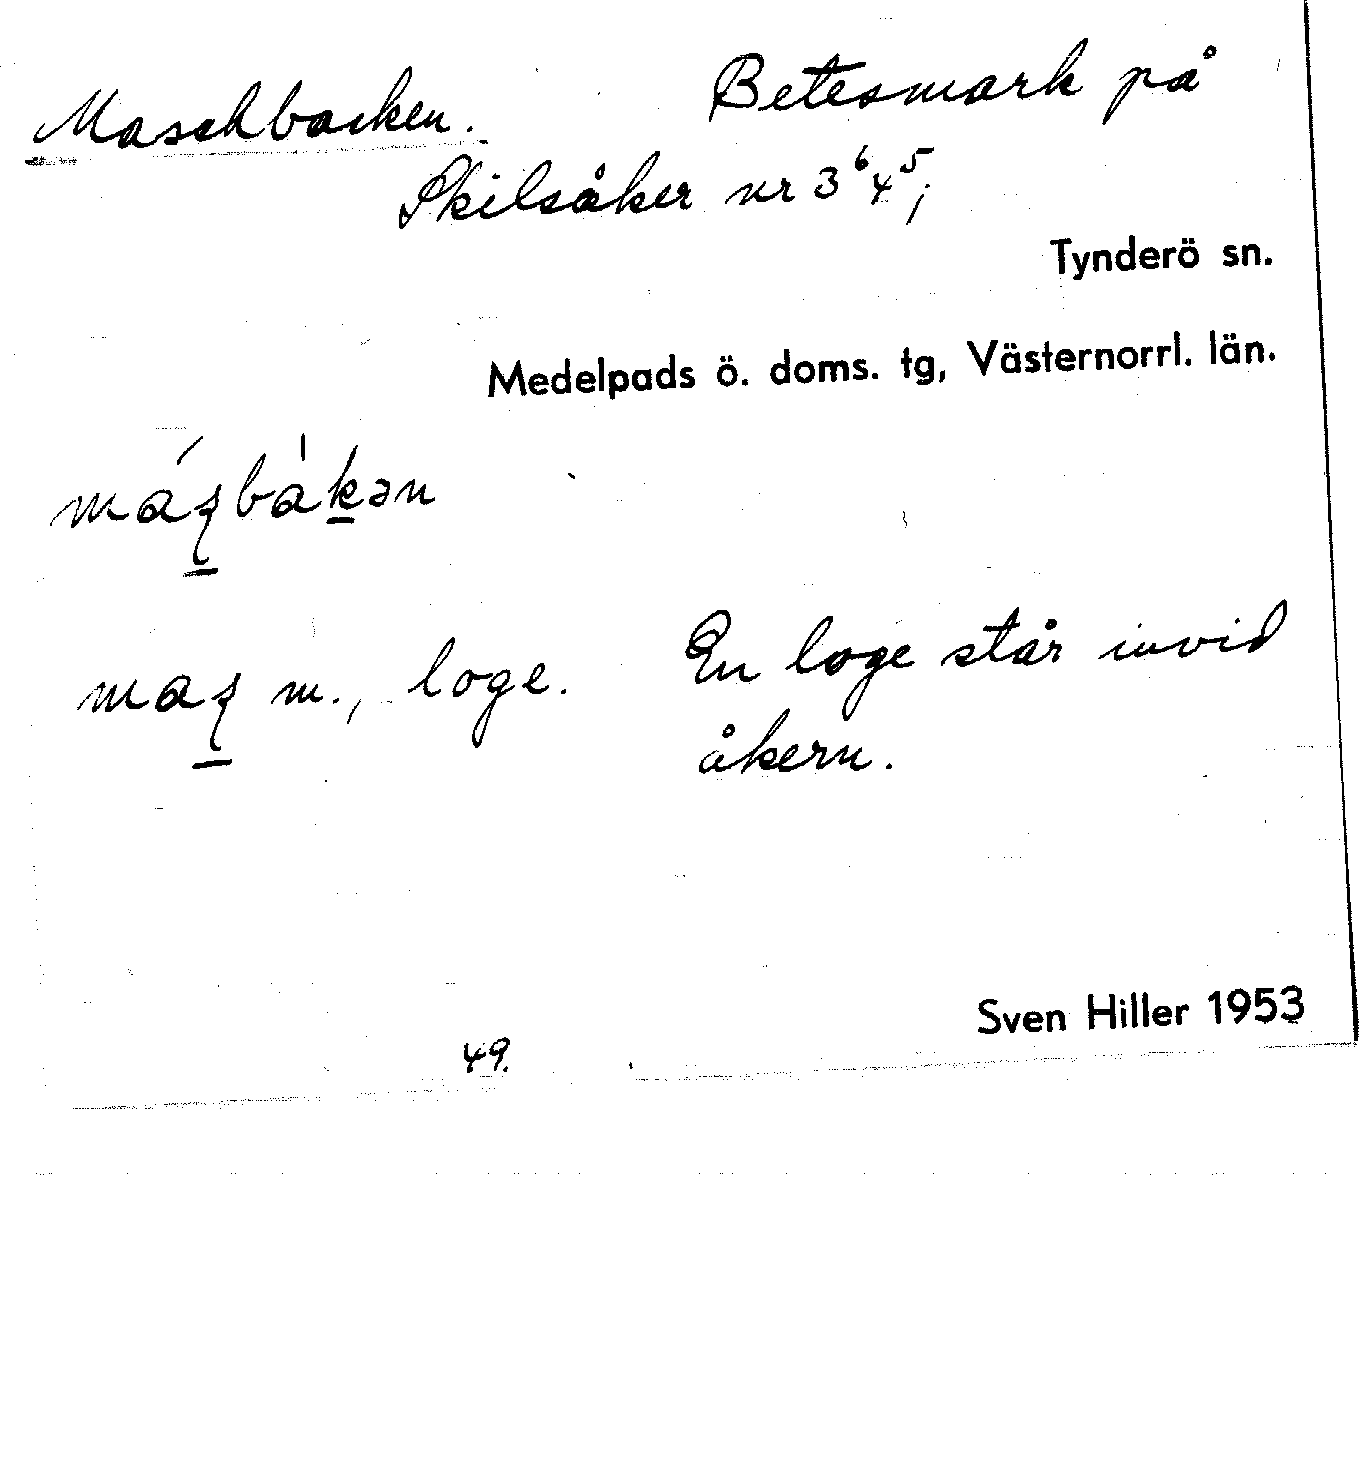 Maschbacken. Betesmark på
Skilsåker nr 3⁶ 4⁵;
Tynderö sn.
Medelpads ö. doms. tg, Västernorrl. län.
m., loge. En loge står invid
åkern.
Sven Hiller 1953
49.